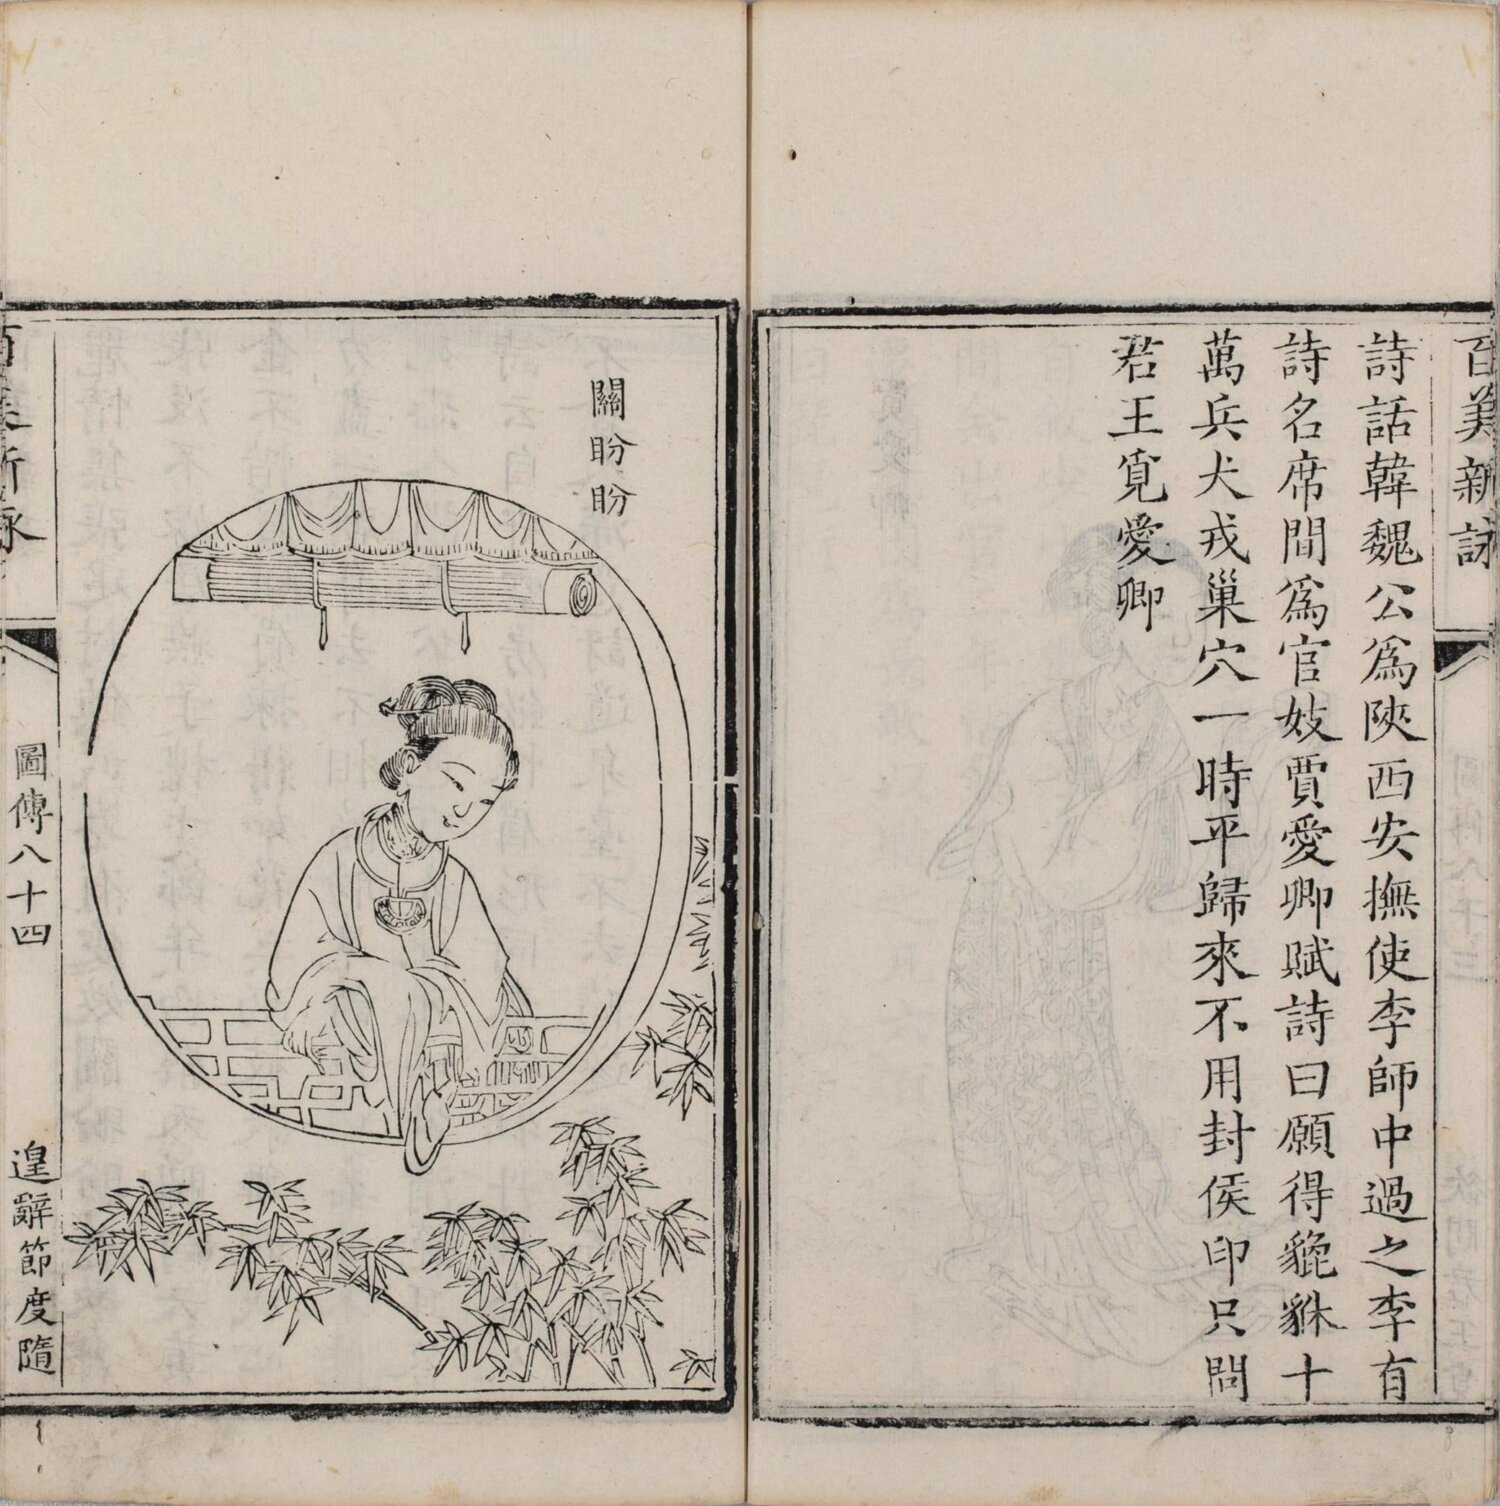 百美新詠
詩話韓魏公爲陝西安撫使李師中過之李有
詩名席間爲官妓賈愛卿賦詩曰願得貔貅十
萬兵犬戎巢穴一時平歸來不用封侯印只問
君王覓愛卿
關盼盼
百美新詠
圖傳八十四
遑辭節度隨